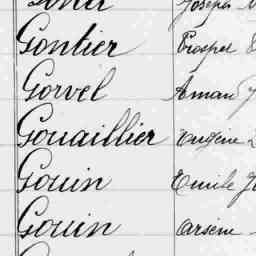 Joseph
Gontier Prosper
Gorvel Aman
Gouaillier Eugène
Gouin Emile
Gouin Arsène